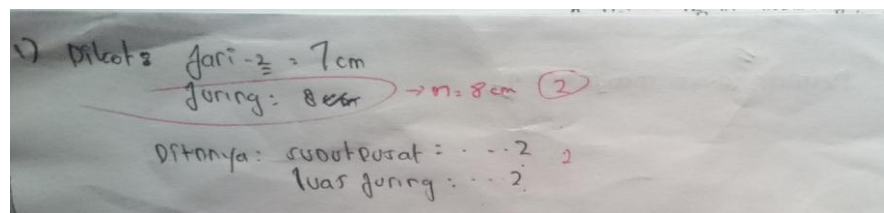 1) Diket: Jari-2 = 7 cm
Juring: 8 → n = 8 cm 2
Ditanya: sudut pusat: ....? 2
luas juring: ...?